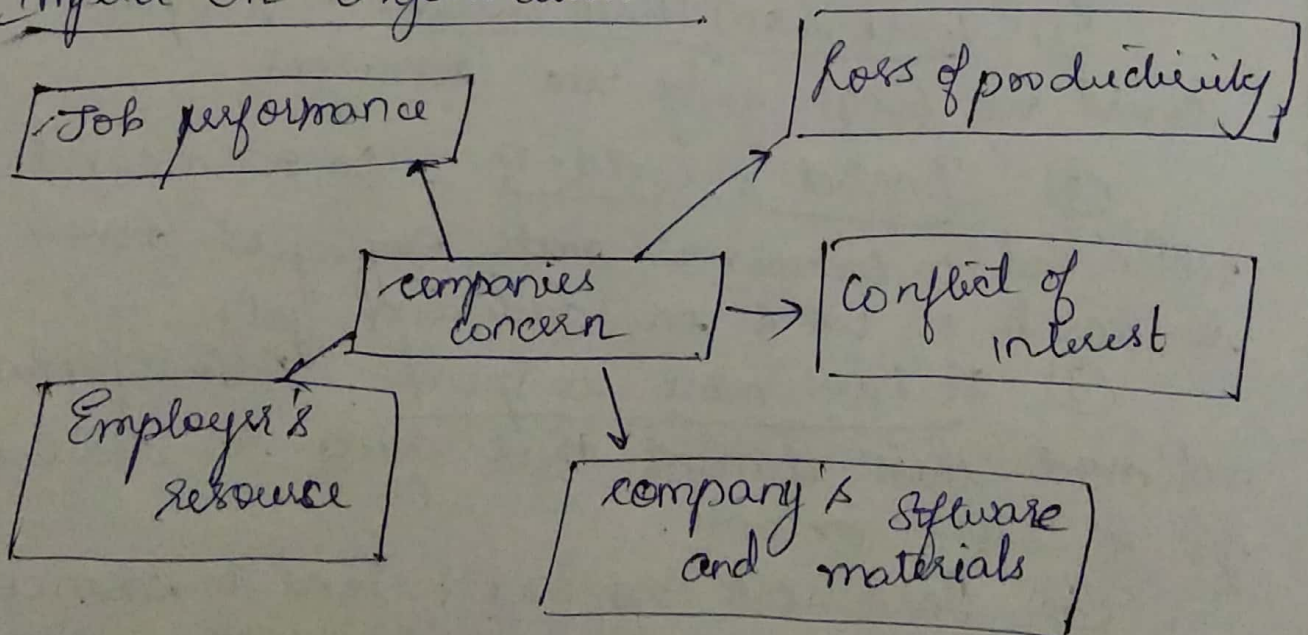 Job performance
Loss of productivity
companies
concern
Conflict of
interest
Employer's
resource
company's software
and materials